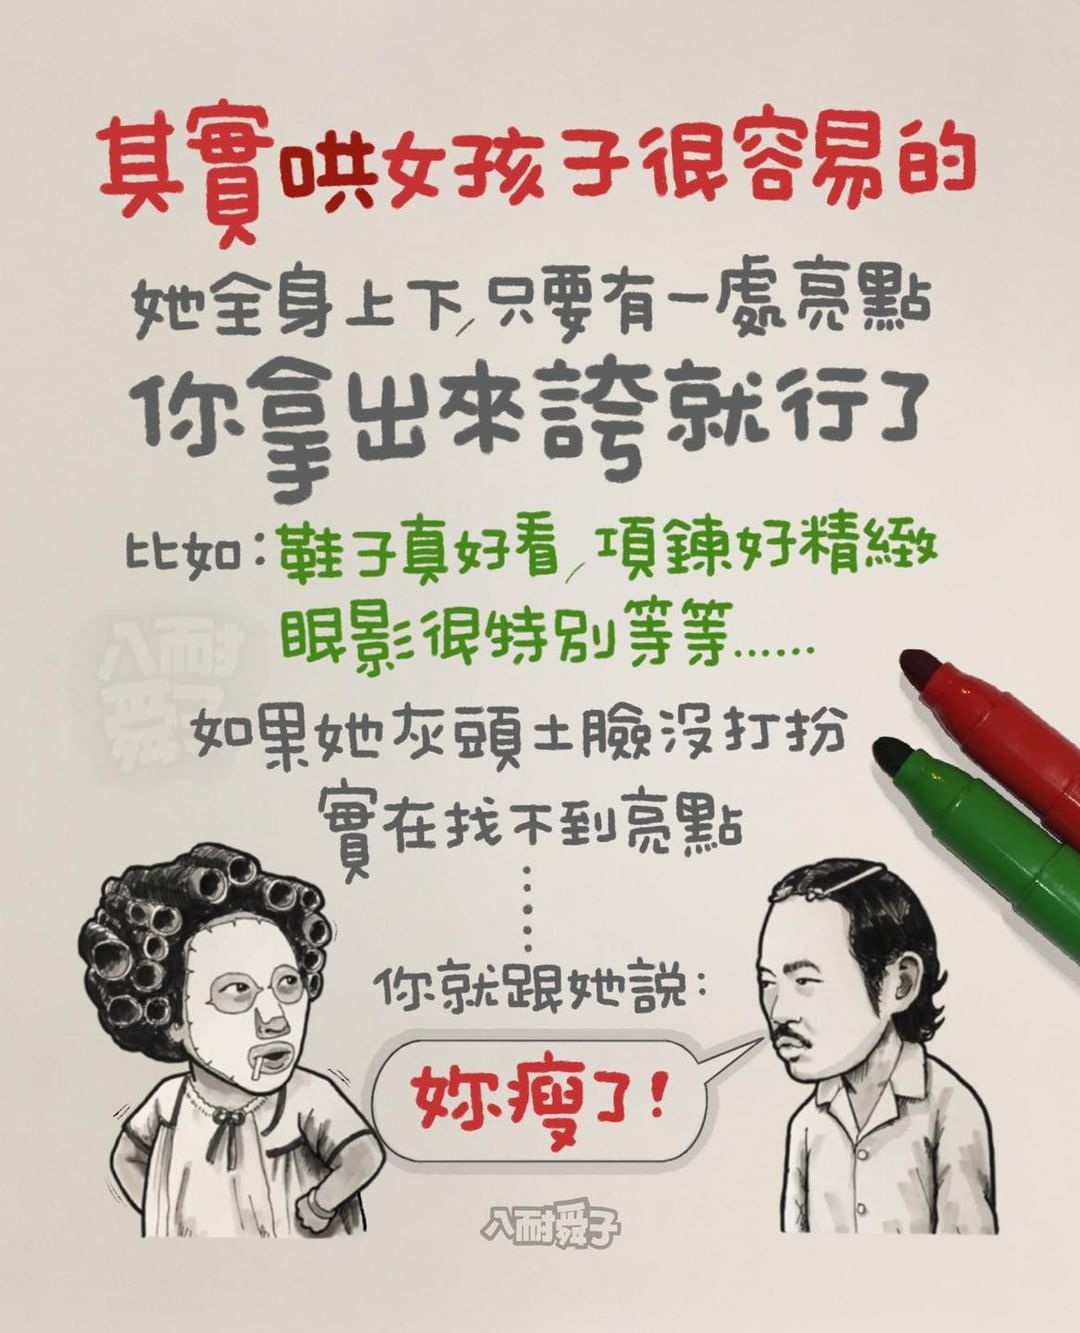 其實哄女孩子很容易的
她全身上下,只要有一處亮點
你拿出來誇就行了
比如:鞋子真好看,項鍊好精緻
眼影很特別等等......
八耐舜子
如果她灰頭土臉沒打扮
實在找不到亮點
你就跟她說:
妳瘦了!
八耐舜子